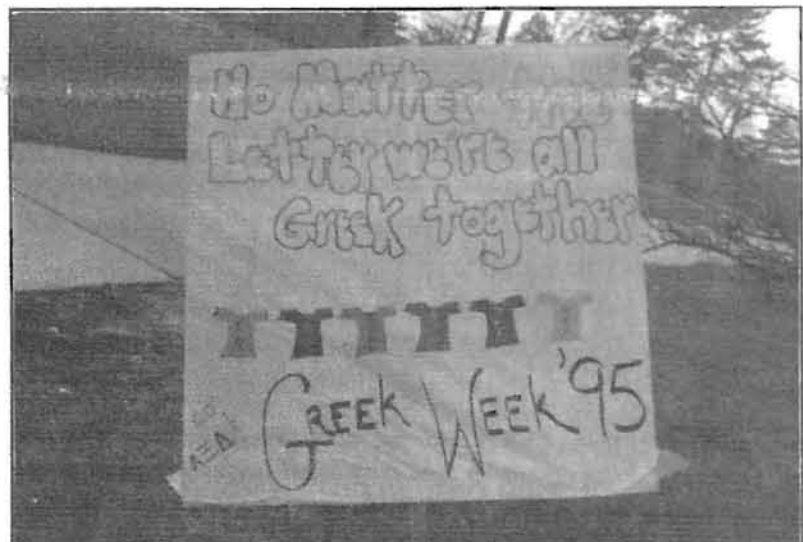 No Matter the
Letter we're all
Greek together
GREEK WEEK '95
ΑΞΔ